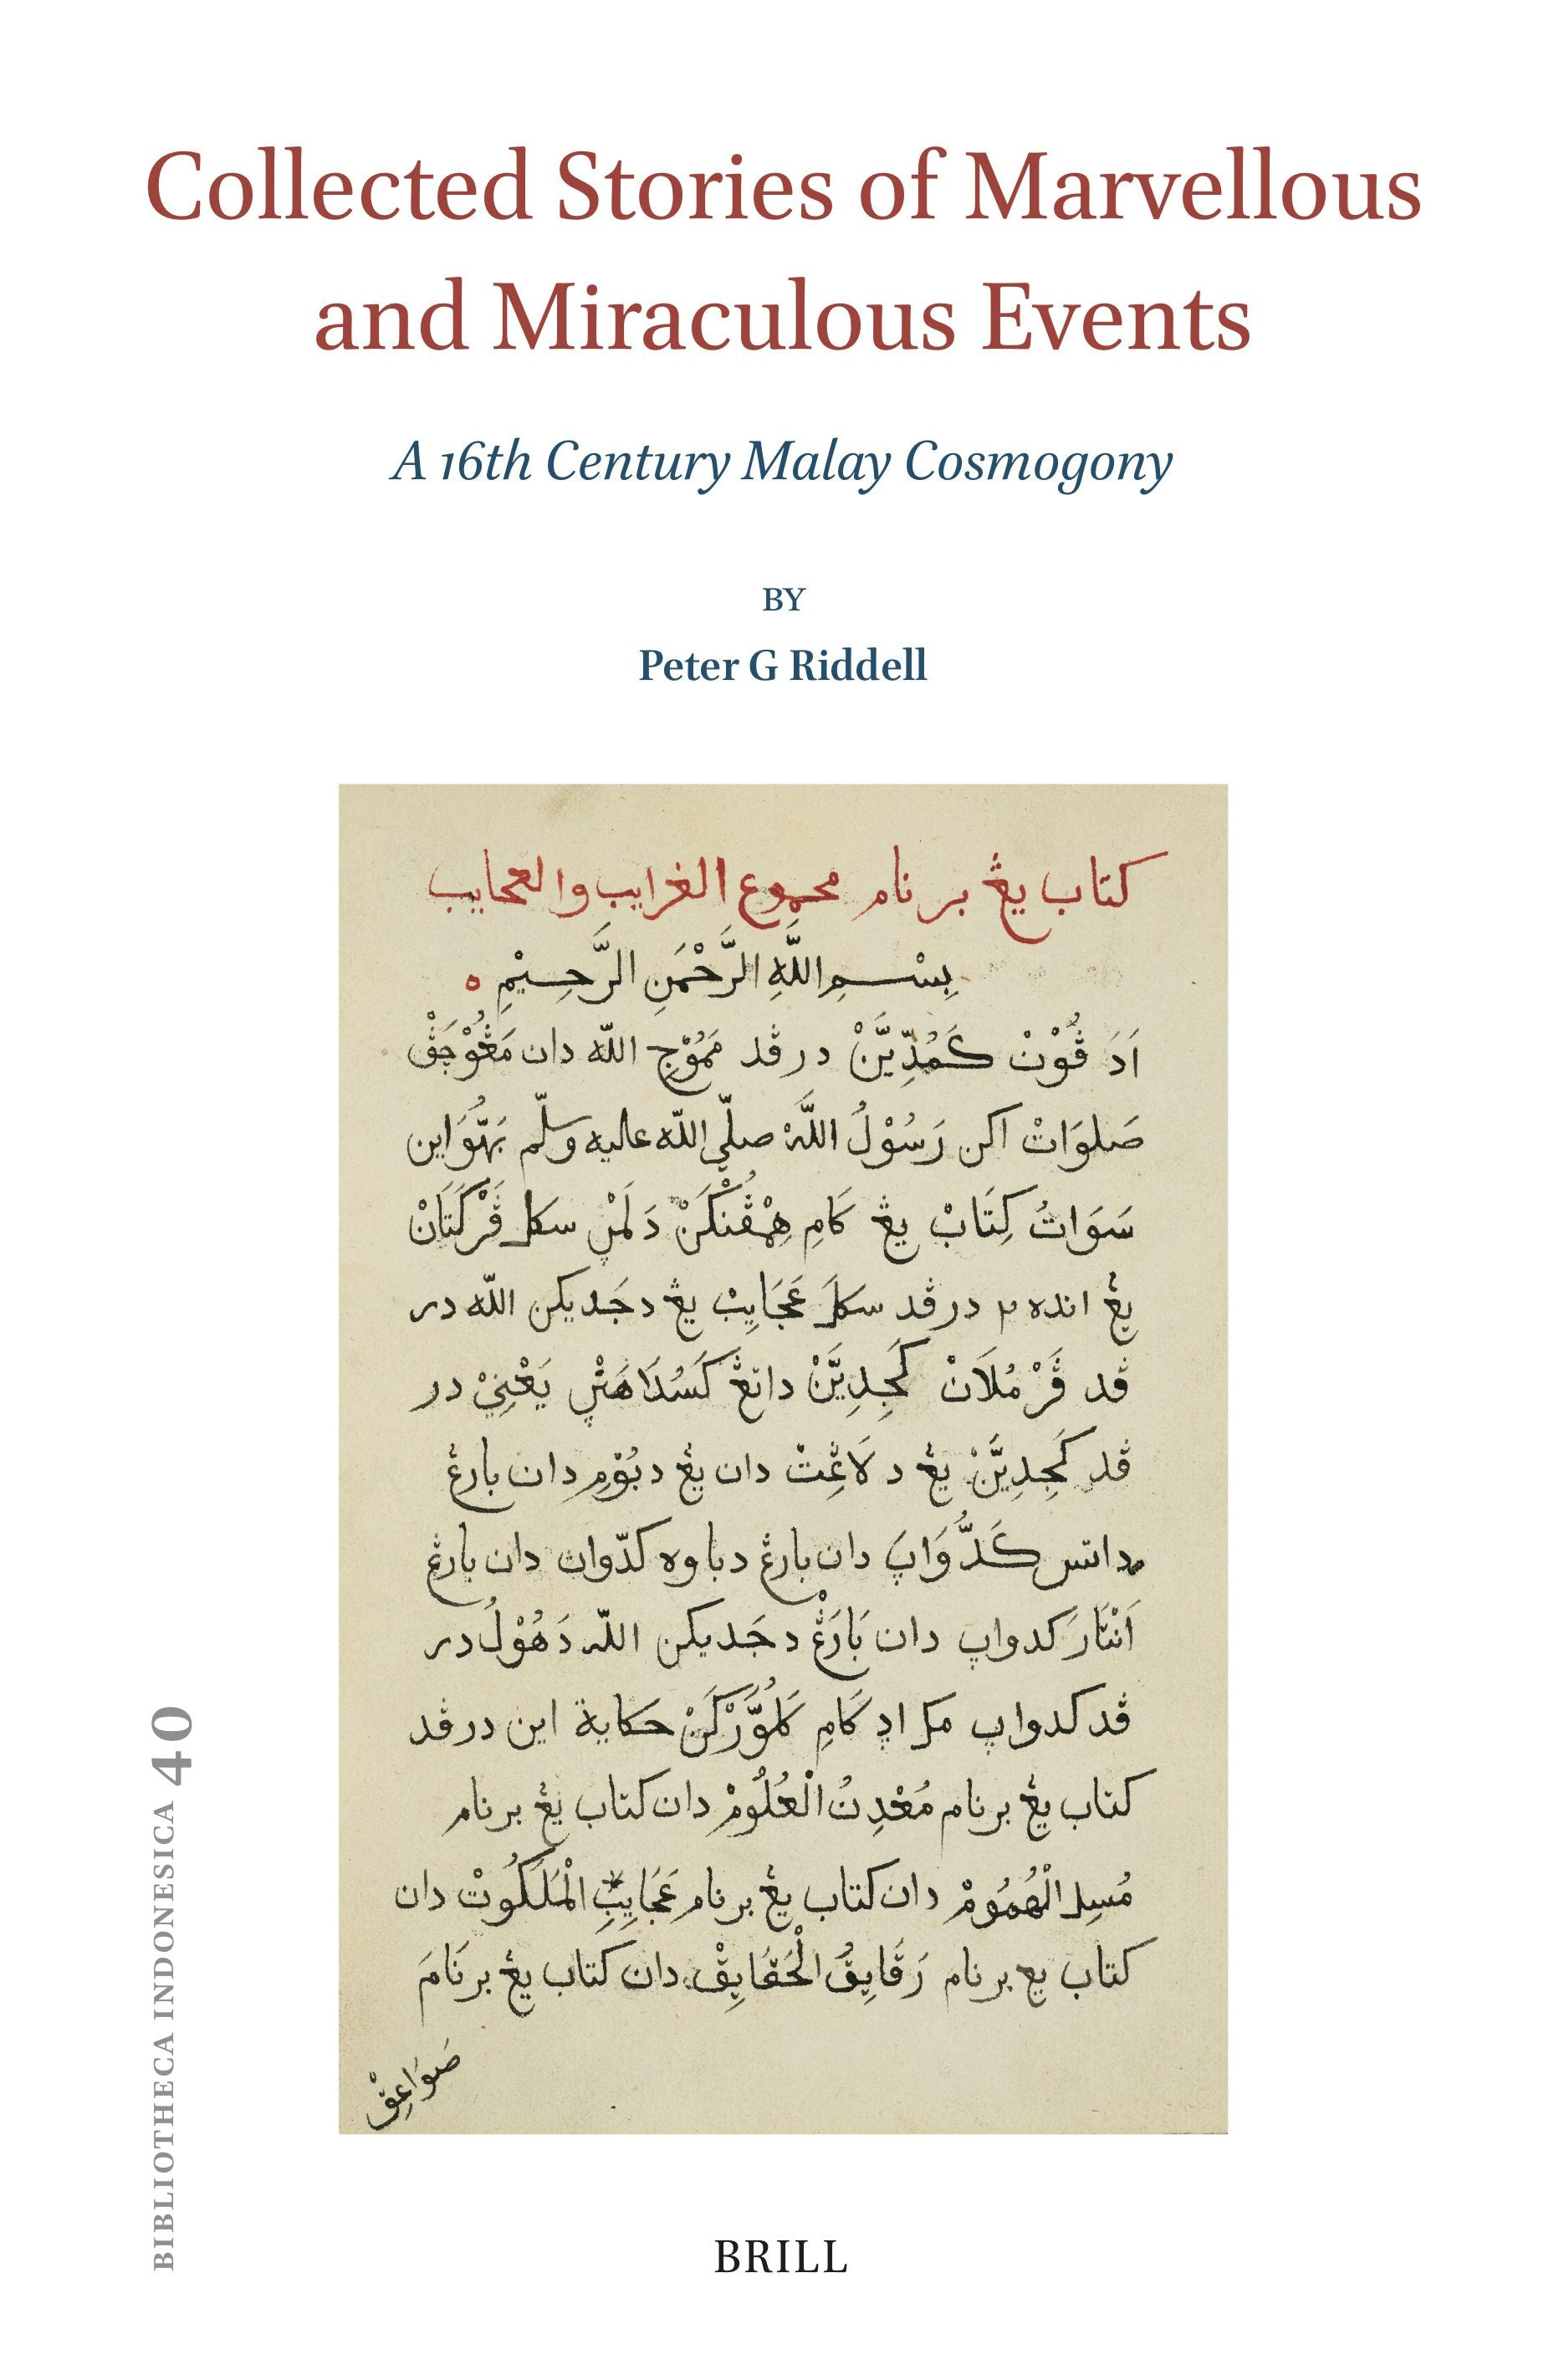 Collected Stories of Marvellous
and Miraculous Events
A 16th Century Malay Cosmogony
BY
Peter G Riddell
كتاب يڠ برنام مجموع الغرايب والعجايب
بِسْمِ اللَّهِ الرَّحْمَنِ الرَّحِيْمِ
اَدَ ڤُوْنْ كَمُدِّيَنْ درڤد مَمُوْجِ اللّه دان مَڠُوْچَڤْ
صَلوَاتْ اكن رَسُوْلُ اللَّهْ صلّي اللّه عليه وسلّم بَهُّوَ اين
سَوَاتُ كِتَابْ يڠ كَامِ هِمْڤُنْكَنْ دَلَمْڽ سكل ڤَرْكَتَانْ
يڠ انده ٢ درڤد سكلَ عَجَايِبْ يڠ دجَديكن اللّه در
ڤد ڤَرْمُلَانْ كَجِدِيَّنْ داتڠ كَسُدَاهَنْڽ يَعْنِيْ در
ڤد كَجِدِيَّنْ يڠ د لَاڠِتْ دان يڠ دبُوْمِ دان بارڠ
داتس كَدُّوَاڽَ دان بارڠ دباوه كدّوان دان بارڠ
اَنْتَارَ كدواڽ دان بَارَڠْ دجَديكن اللّه دَهُوْلُ در
ڤد كدواڽ مك اد كَامِ كَلُوَّرْكَنْ حكاية اين درڤد
كتاب يڠ برنام مُعْدِنُ الْعُلُوْمْ دان كتاب يڠ برنام
مُسِلِ الْهُمُوْمْ دان كتاب يڠ برنام عَجَايِبِ الْمَلَكُوْتْ دان
كتاب يع برنام رَقَايِقُ الْحَقَايِقْ دان كتاب يڠ برنَامَ
صَوَاعِقْ
BIBLIOTHECA INDONESICA 40
BRILL